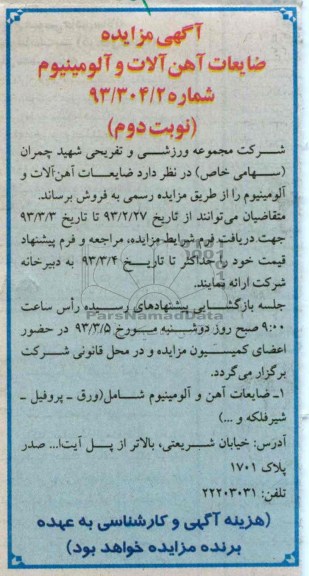 آگهی مزایده
ضایعات آهن آلات و آلومینیوم
شماره ۹۳/۳۰۴/۲
(نوبت دوم)
شرکت مجموعه ورزشی و تفریحی شهید چمران
(سهامی خاص) در نظر دارد ضایعات آهن‌آلات و
آلومینیوم را از طریق مزایده رسمی به فروش برساند.
متقاضیان می‌توانند از تاریخ ۹۳/۲/۲۷ تا تاریخ ۹۳/۳/۳
جهت دریافت فرم شرایط مزایده، مراجعه و فرم پیشنهاد
قیمت خود را حداکثر تا تاریخ ۹۳/۳/۴ به دبیرخانه
شرکت ارائه نمایند.
جلسه بازگشایی پیشنهادهای رسیده رأس ساعت
۹:۰۰ صبح روز دوشنبه مورخ ۹۳/۳/۵ در حضور
اعضای کمیسیون مزایده و در محل قانونی شرکت
برگزار می‌گردد.
۱ـ ضایعات آهن و آلومینیوم شامل(ورق ـ پروفیل ـ
شیرفلکه و ...)
آدرس: خیابان شریعتی، بالاتر از پل آیت‌ا... صدر
پلاک ۱۷۰۱
تلفن: ۲۲۲۰۳۰۳۱
(هزینه آگهی و کارشناسی به عهده
برنده مزایده خواهد بود)
ParsNamadData